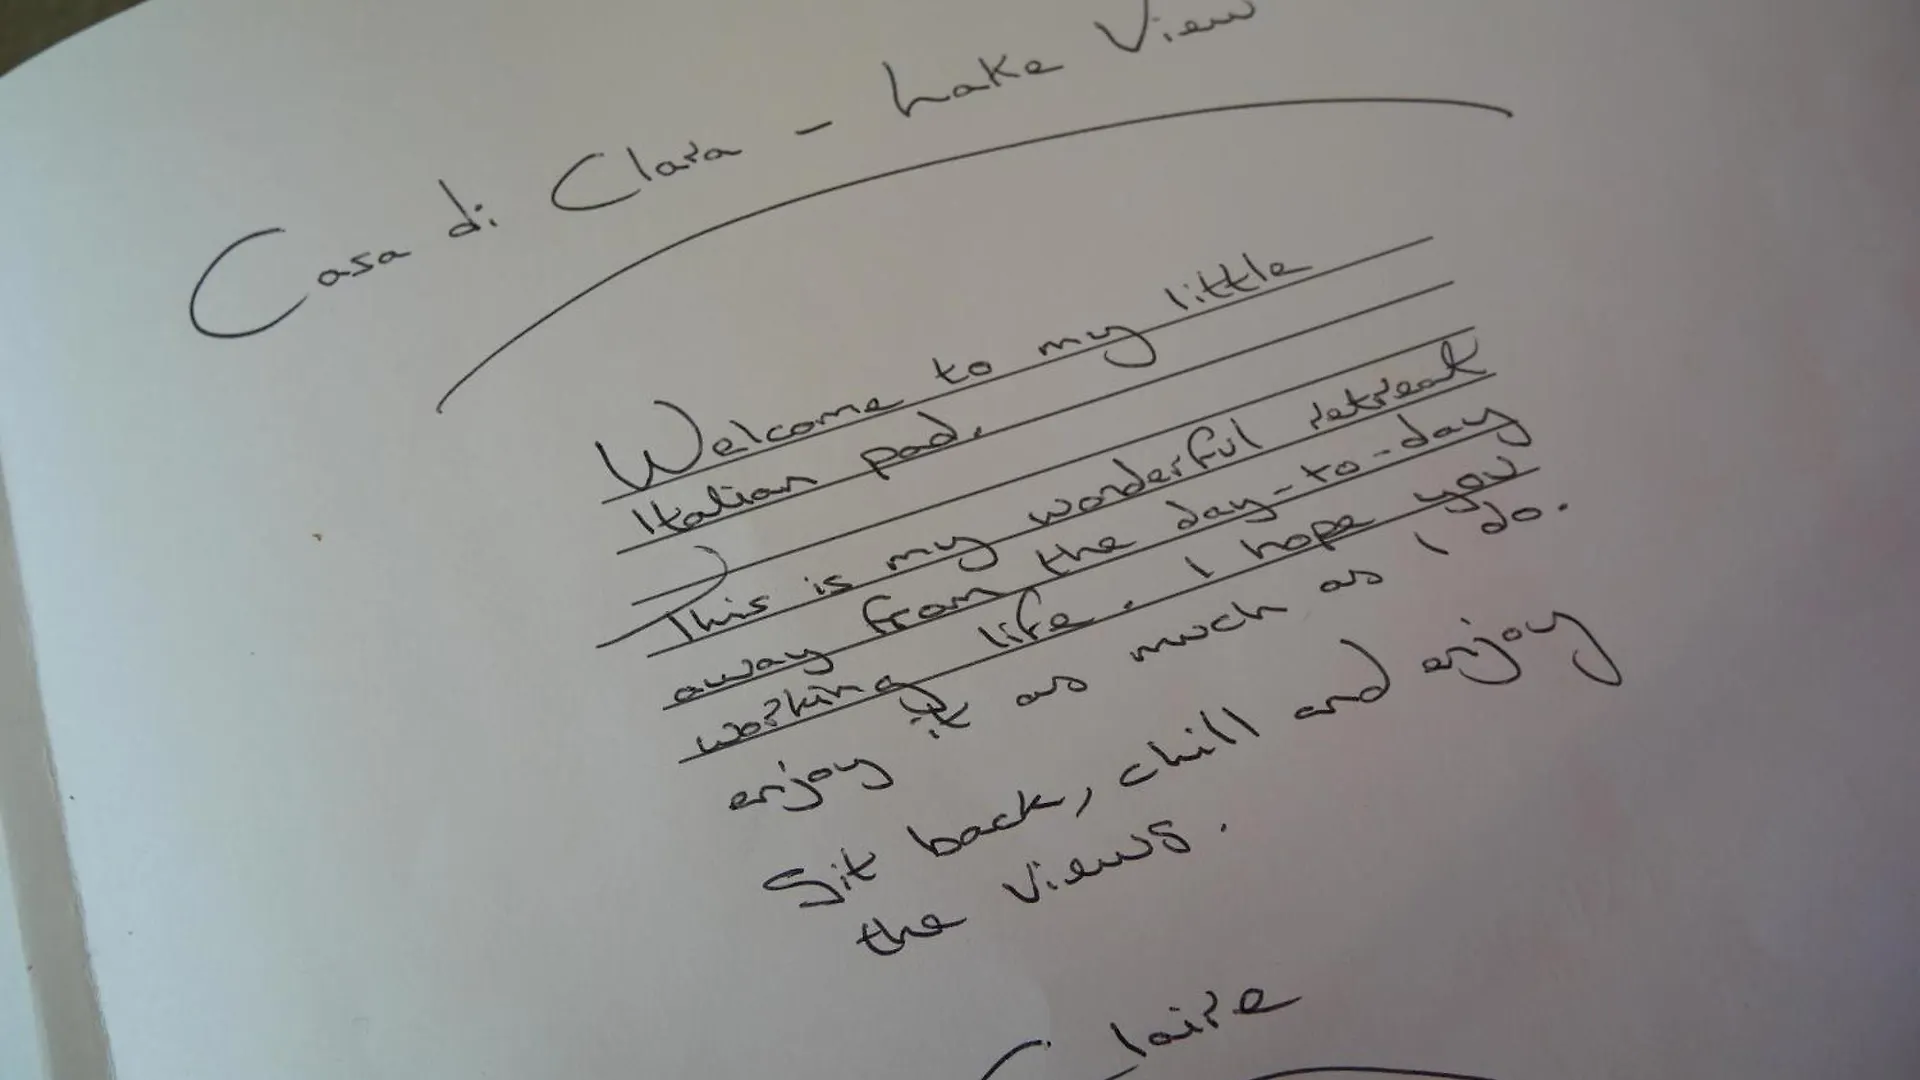 Casa di Clara - Lake View
Welcome to my little
Italian pad.
This is my wonderful retreat
away from the day-to-day
working life. I hope you
enjoy it as much as I do.
Sit back, chill and enjoy
the views.
Claire